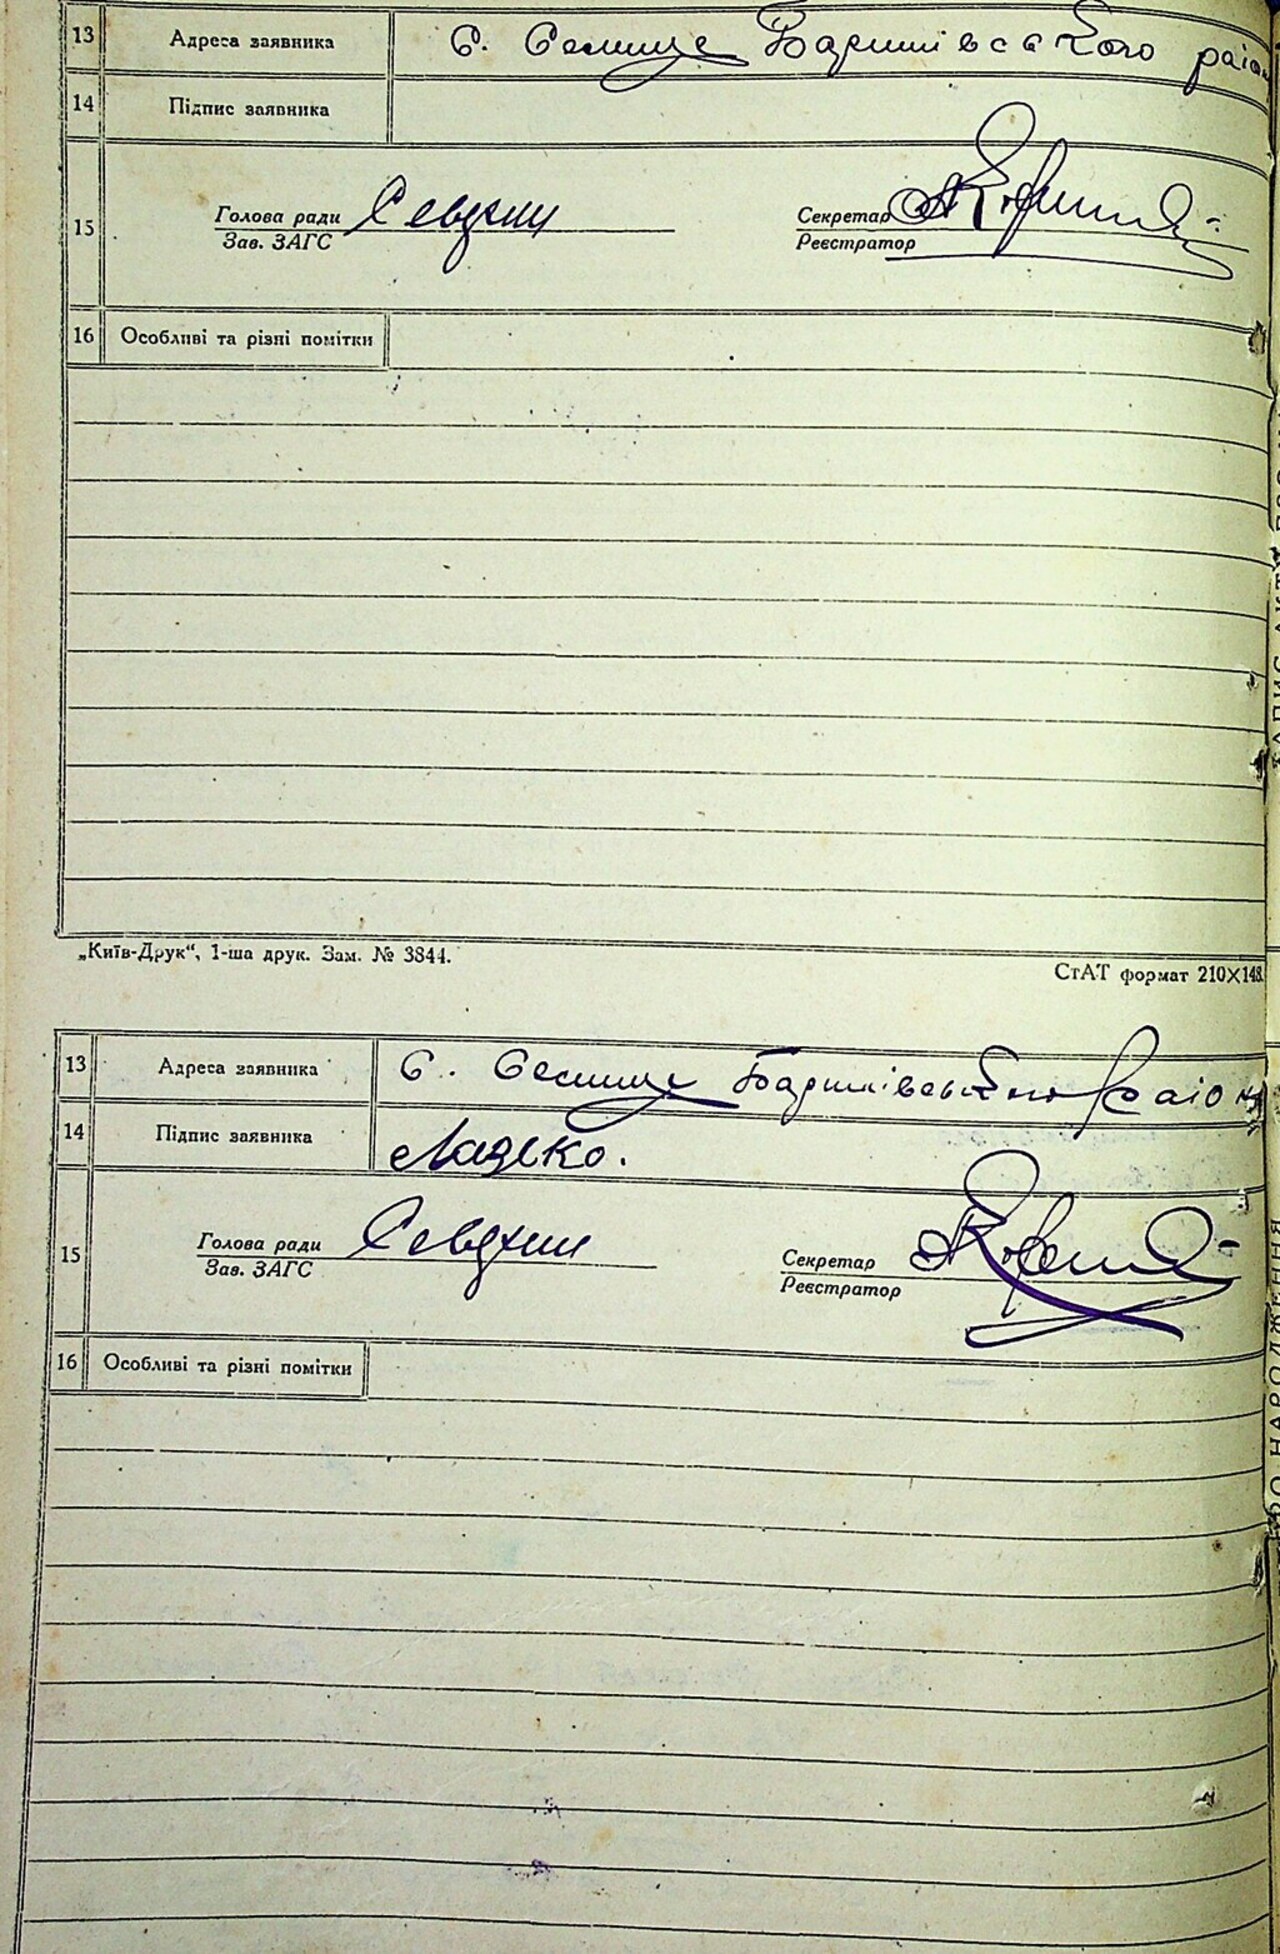 13 Адреса заявника С. Селище Баришівського район
14 Підпис заявника
15 Голова ради Секретар
Зав. ЗАГС Реєстратор
16 Особливі та різні помітки
„Київ-Друк“, 1-ша друк. Зам. № 3844.
СтАТ формат 210X148
13 Адреса заявника С. Селище Баришівського району
14 Підпис заявника
15 Голова ради Секретар
Зав. ЗАГС Реєстратор
16 Особливі та різні помітки
НАРОДЖЕННЯ